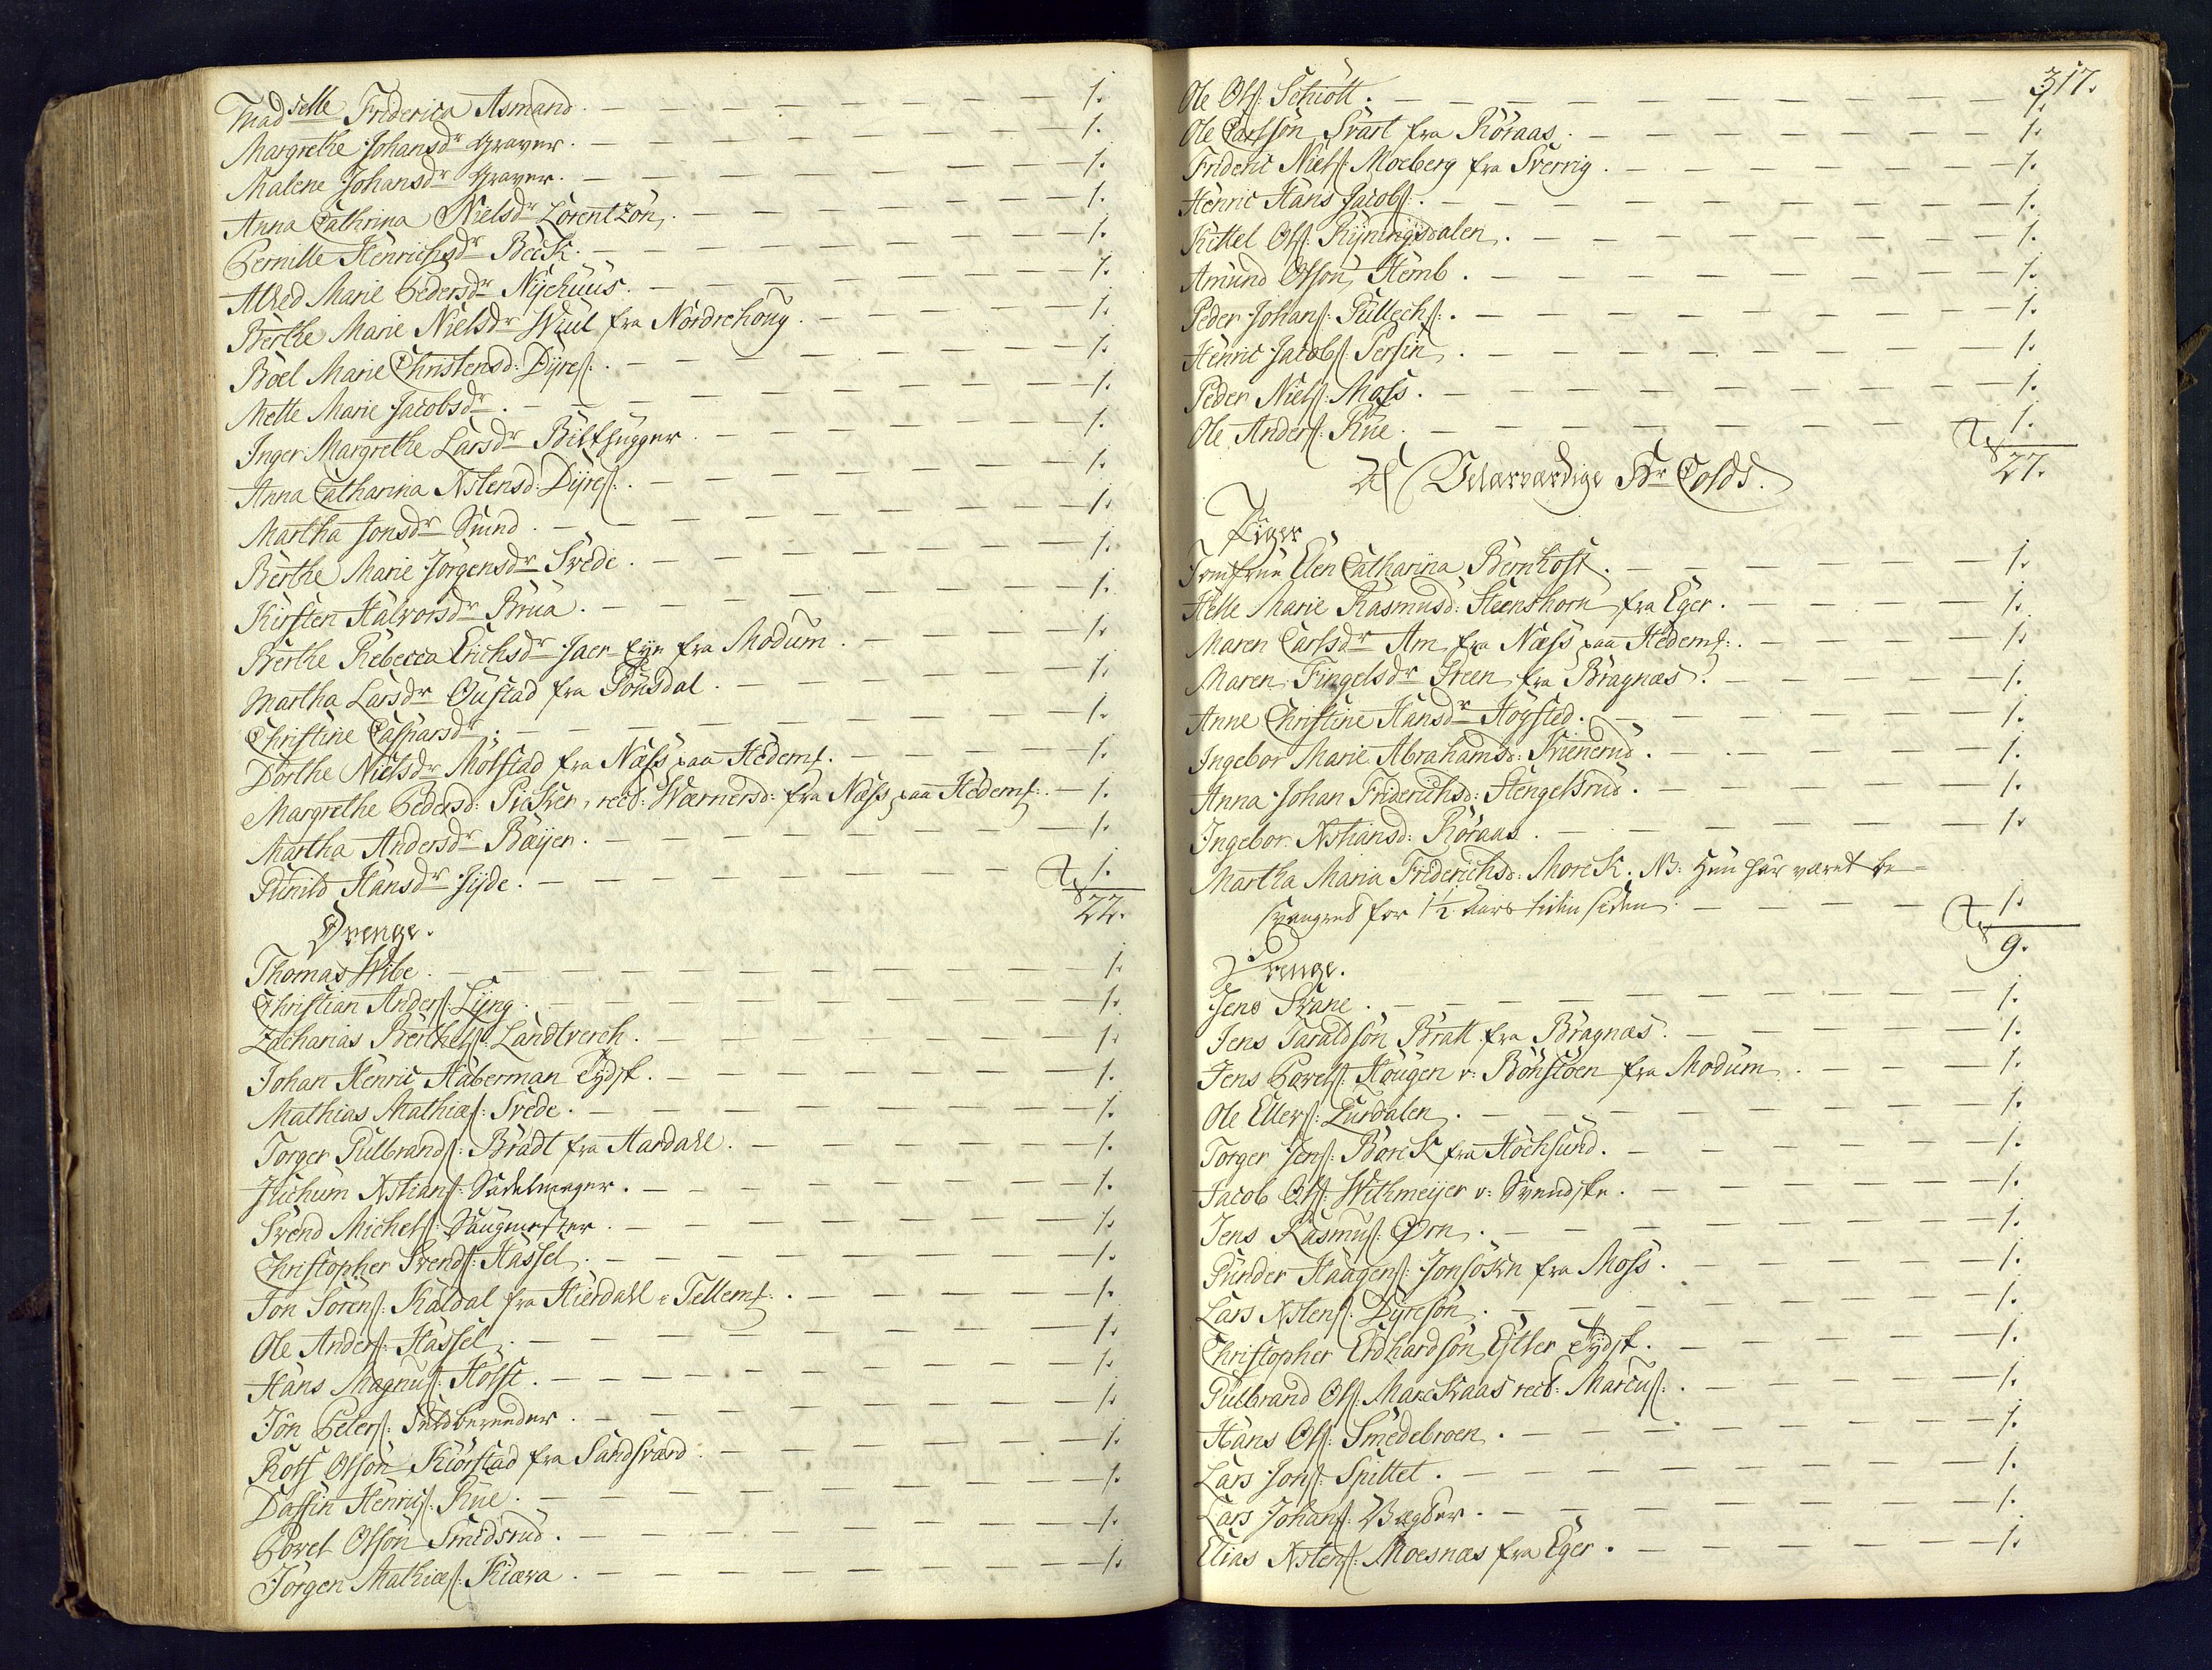 Madselle Friderica Asmand. — 1.
Margrethe Johansdr Graver. — 1.
Malene Johansdr Graver. — 1.
Anna Cathrina Nielsdr Lorentzön. — 1.
Pernille Henrichsdr Beck. — 1.
Alhed Marie Pedersdr Nÿehuus. — 1.
Berthe Marie Nielsdr Wiul fra Nordrehoug. — 1.
Boel Marie Christensd: Dÿres: — 1.
Mette Marie Jacobsdr. — 1.
Inger Margrethe Larsdr Bilthugger. — 1.
Anna Catharina Xstensd: Dÿres: — 1.
Martha Jonsdr Smed. — 1.
Berthe Marie Jörgensdr Svede. — 1.
Kirsten Halvorsdr Brua. — 1.
Berthe Rebecca Erichsdr Jaer-Eye fra Modum. — 1.
Martha Larsdr Oustad fra — 1.
Christine Caspersdr. — 1.
Dorthe Nielsdr Molstad fra Næss paa Hedems. — 1.
Margrethe Pedersd: Picker, rect: Wærnersd: fra Næss paa Hedems: — 1.
Martha Andersdr Bæijer. — 1.
Gunild Hansdr Jÿde. — 1.
22.
Drenge.
Thomas Wibe. — 1.
Christian Anders: Lÿng. — 1.
Zacharias Berthels: Landtverch. — 1.
Johan Henric Haberman Tydsk. — 1.
Mathias Mathias: Svede. — 1.
Torger Gulbrands: Bradt fra Aardahl. — 1.
Juchum Xstians: Sadelmager. — 1.
Svend Michels: Saugmester. — 1.
Christopher Svends: Hassel. — 1.
Jon Sörens: Kaldal fra Hierdahl i Tellems: — 1.
Ole Anders: Hassel. — 1.
Hans Magnus: Holst. — 1.
Jon Peters: Guldbrender. — 1.
Rolf Olson Kiörstad fra Sandsværd. — 1.
Daffin Henrics: Rue. — 1.
Povel Olson Smedsrud. — 1.
Jörgen Mathias: Kiæra. — 1.
317.
Ole Ols: Schiött. — 1.
Ole Carlsön Svart fra Röraas. — 1.
Frideric Niels: Moeberg fra Sverrig. — 1.
Henric Hans Jacobs: — 1.
Kittel Ols: Rÿningsdalen. — 1.
Amund Olson Hemb. — 1.
Peder Johans: Gullechs: — 1.
Henric Jacobs: Persin. — 1.
Peder Niels: Moss. — 1.
Ole Anders: Rue. — 1.
27.
Af Velærværdige Hr Colds.
Piger
Jomfrue Elen Catharina Bernhoft. — 1.
Helle Marie Rasmusd: Steenshorn fra Eger. — 1.
Maren Carlsdr Am fra Næss paa Hedems: — 1.
Maren Fingelsdr Green fra Bragnæs. — 1.
Anne Christine Hansdr Höysted. — 1.
Ingebor Marie Abrahamsd: Kienerud. — 1.
Anna Johan Friderichsd: Stengelsrud. — 1.
Ingebor Xstiansd: Röraas. — 1.
Martha Maria Friderichsd: Morck. NB: Hun har været be-
svangred for 1½ Aars tiden siden. — 1.
9.
Drenge.
Jens Svane. — 1.
Jens Taraldsön Bratt fra Bragnæs. — 1.
Jens Povels: Hougen v: Bönstöen fra Modum. — 1.
Ole Ellers: Lurdalen. — 1.
Torger Jens: Barck fra Höchsund. — 1.
Jacob Ols: Withmeijer v: Svendske. — 1.
Jens Rasmus: Örn. — 1.
Gunder Haagens: Jonsösen fra Moss. — 1.
Lars Xstens: Dyresön. — 1.
Christopher Erdhardsön Estler Tydsk. — 1.
Gulbrand Ols: Marckaas rect: Marcus: — 1.
Hans Ols: Smedebroen. — 1.
Lars Jons: Spittet. — 1.
Lars Johans: Vægter. — 1.
Elias Xstens: Moesnæs fra Eger. — 1.